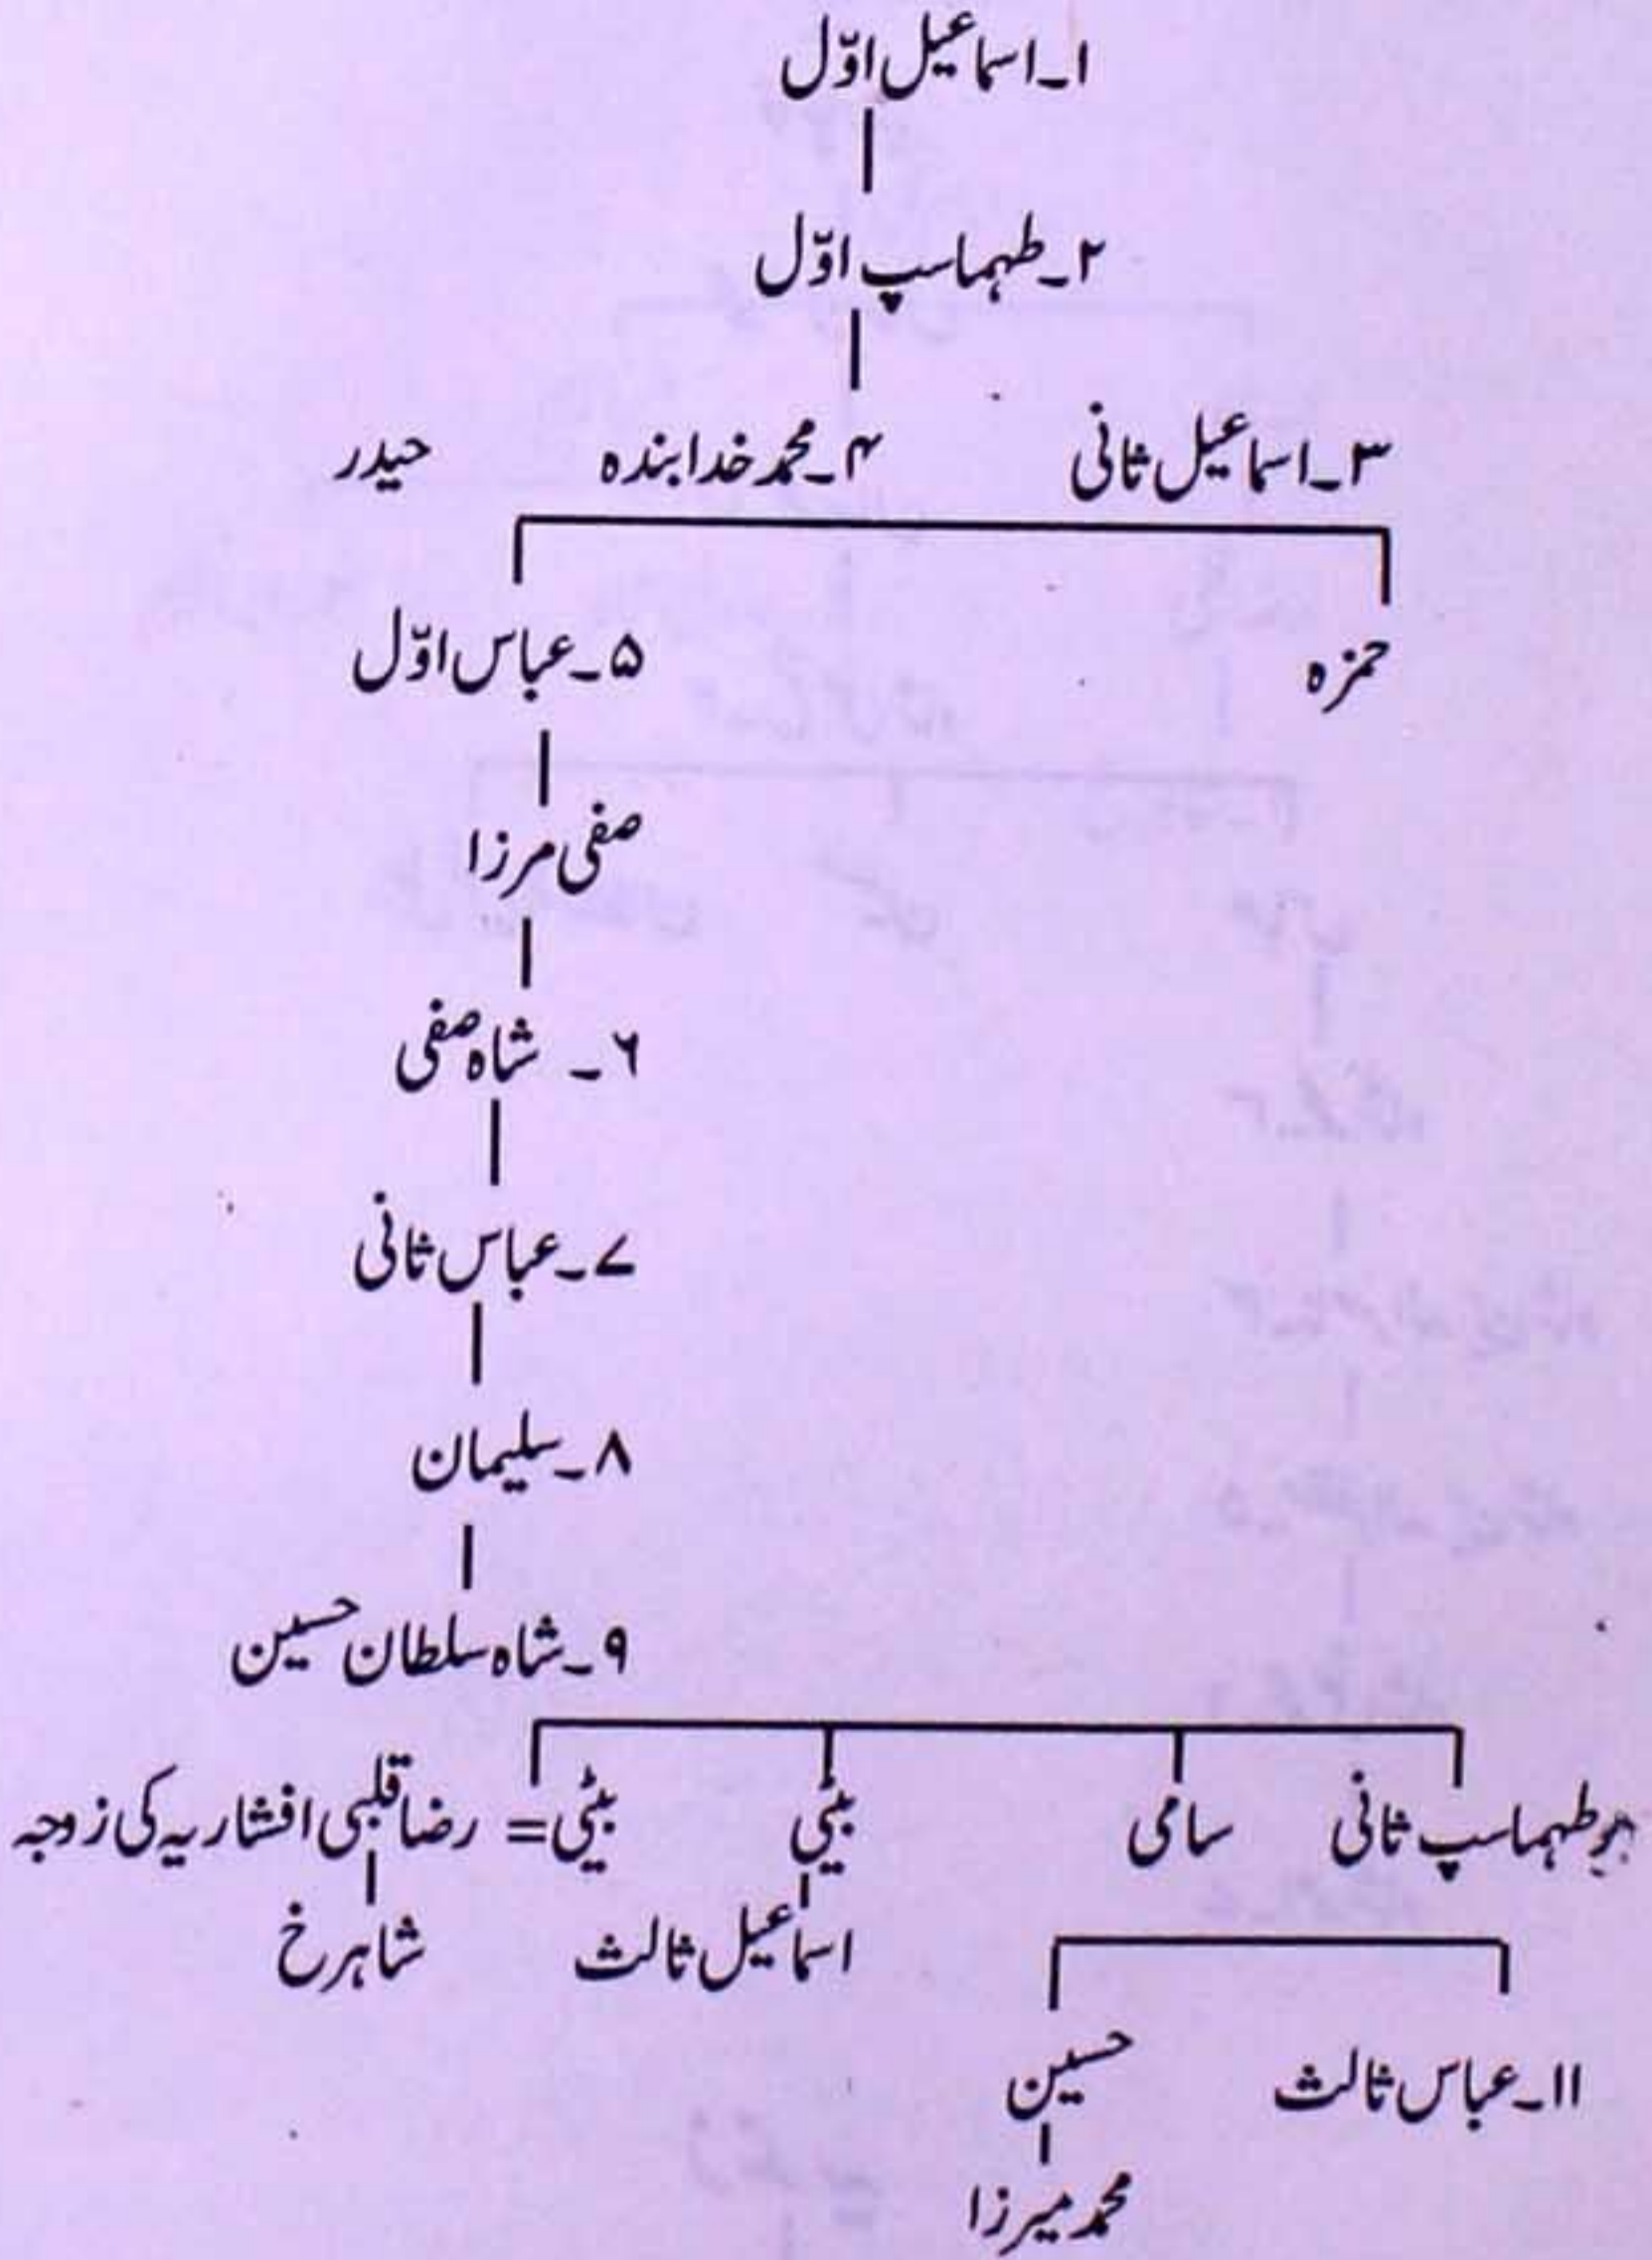 ۱۔اسماعیل اوّل
۲۔طہماسپ اوّل
۳۔اسماعیل ثانی ۴۔محمد خدا بندہ حیدر
حمزہ ۵۔عباس اوّل
صفی مرزا
۶۔ شاہ صفی
۷۔عباس ثانی
۸۔سلیمان
۹۔شاہ سلطان حسین
طہماسپ ثانی سامی بیٹی بیٹی= رضا قلبی افشاریہ کی زوجہ
اسماعیل ثالث شاہرخ
۱۱۔عباس ثالث حسین
محمد میرزا